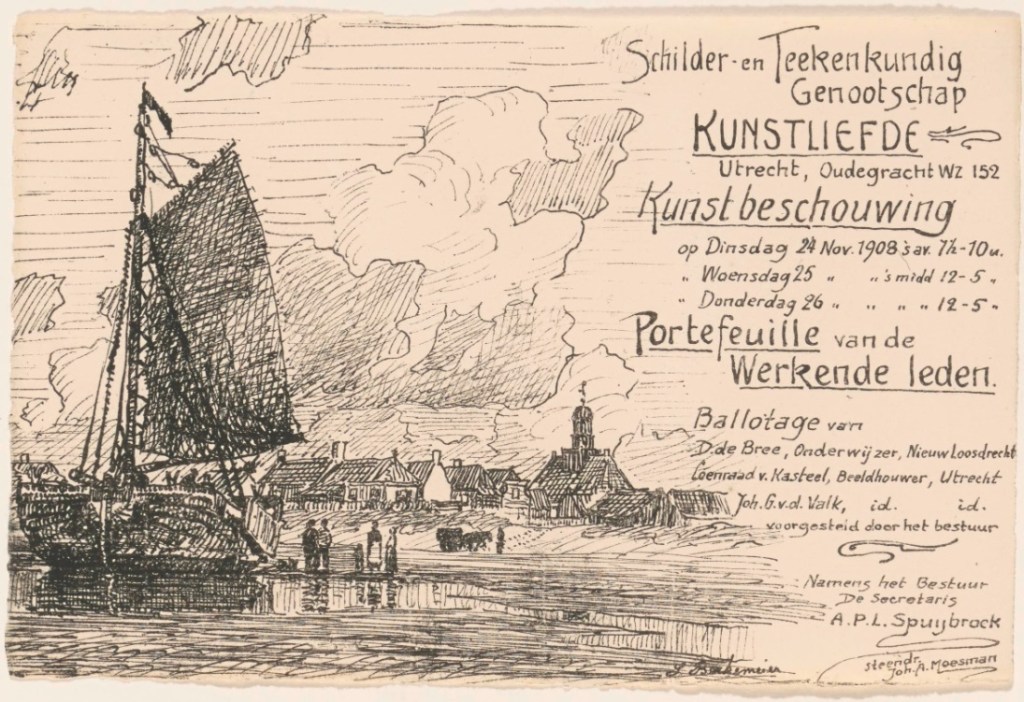 Schilder- en Teekenkundig
Genootschap
KUNSTLIEFDE
Utrecht, Oudegracht WZ 152
Kunstbeschouwing
op Dinsdag 24 Nov. 1908 's av. 7½-10 u.
„ Woensdag 25 „ „ 's midd 12-5 „
„ Donderdag 26 „ „ „ „ 12-5 „
Portefeuille van de
Werkende leden.
Ballotage van
D. de Bree, Onderwijzer, Nieuw Loosdrecht
Coenraad v. Kasteel, Beeldhouwer, Utrecht
Joh. G. v.d. Valk, id. id.
voorgesteld door het bestuur
Namens het Bestuur
De Secretaris
A.P.L. Spuijbroek
steendr.
Joh. A. Moesman